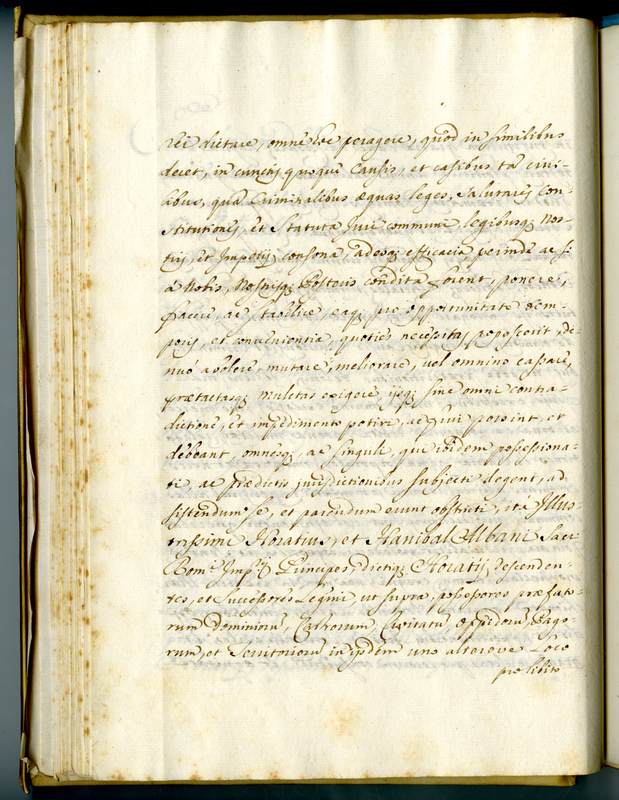 rei dictare, omne hoc peragere, quod in similibus
decet, in cunctisq; quoque Causis, et casibus tā civi-
libus, quā Criminalibus æquas leges, Salutares Con-
stitutiones, et Statuta Juri communi, legibusq; Nos-
tris, et Imperij consona, adeoq; efficacia, perinde ac si
a Nobis, Nostrisq; Posteris condita forent, ponere,
facere, ac stabilire, eaq; pro opportunitate tem-
poris, et convenientia, quoties necessitas poposcerit, de-
nuò abolere, mutare, meliorare, vel omnino cassare,
prætactasq; mulctas exigere, ijsq; sine omni contra-
dictione, et impedimento potiri, ac frui possint, et
debeant, omnesq; ac singuli, qui ibidem possessiona-
ti, ac prædictis jurisdictionibus subjecti degent, ad
sistendum se, et parendum erunt obstricti, ita Illus-
trissimi Horatius, et Hanibal Albani Sacri
Rom: Imp:ij Principes, dictiq; Horatij descenden-
tes, et Successores Legitimi ut supra, possessores præfato-
rum Dominiorū, Castrorum, Civitatū Oppidorū, Pago-
rum, et Territoriorū in ijsdem uno alterove Loco
pro libito